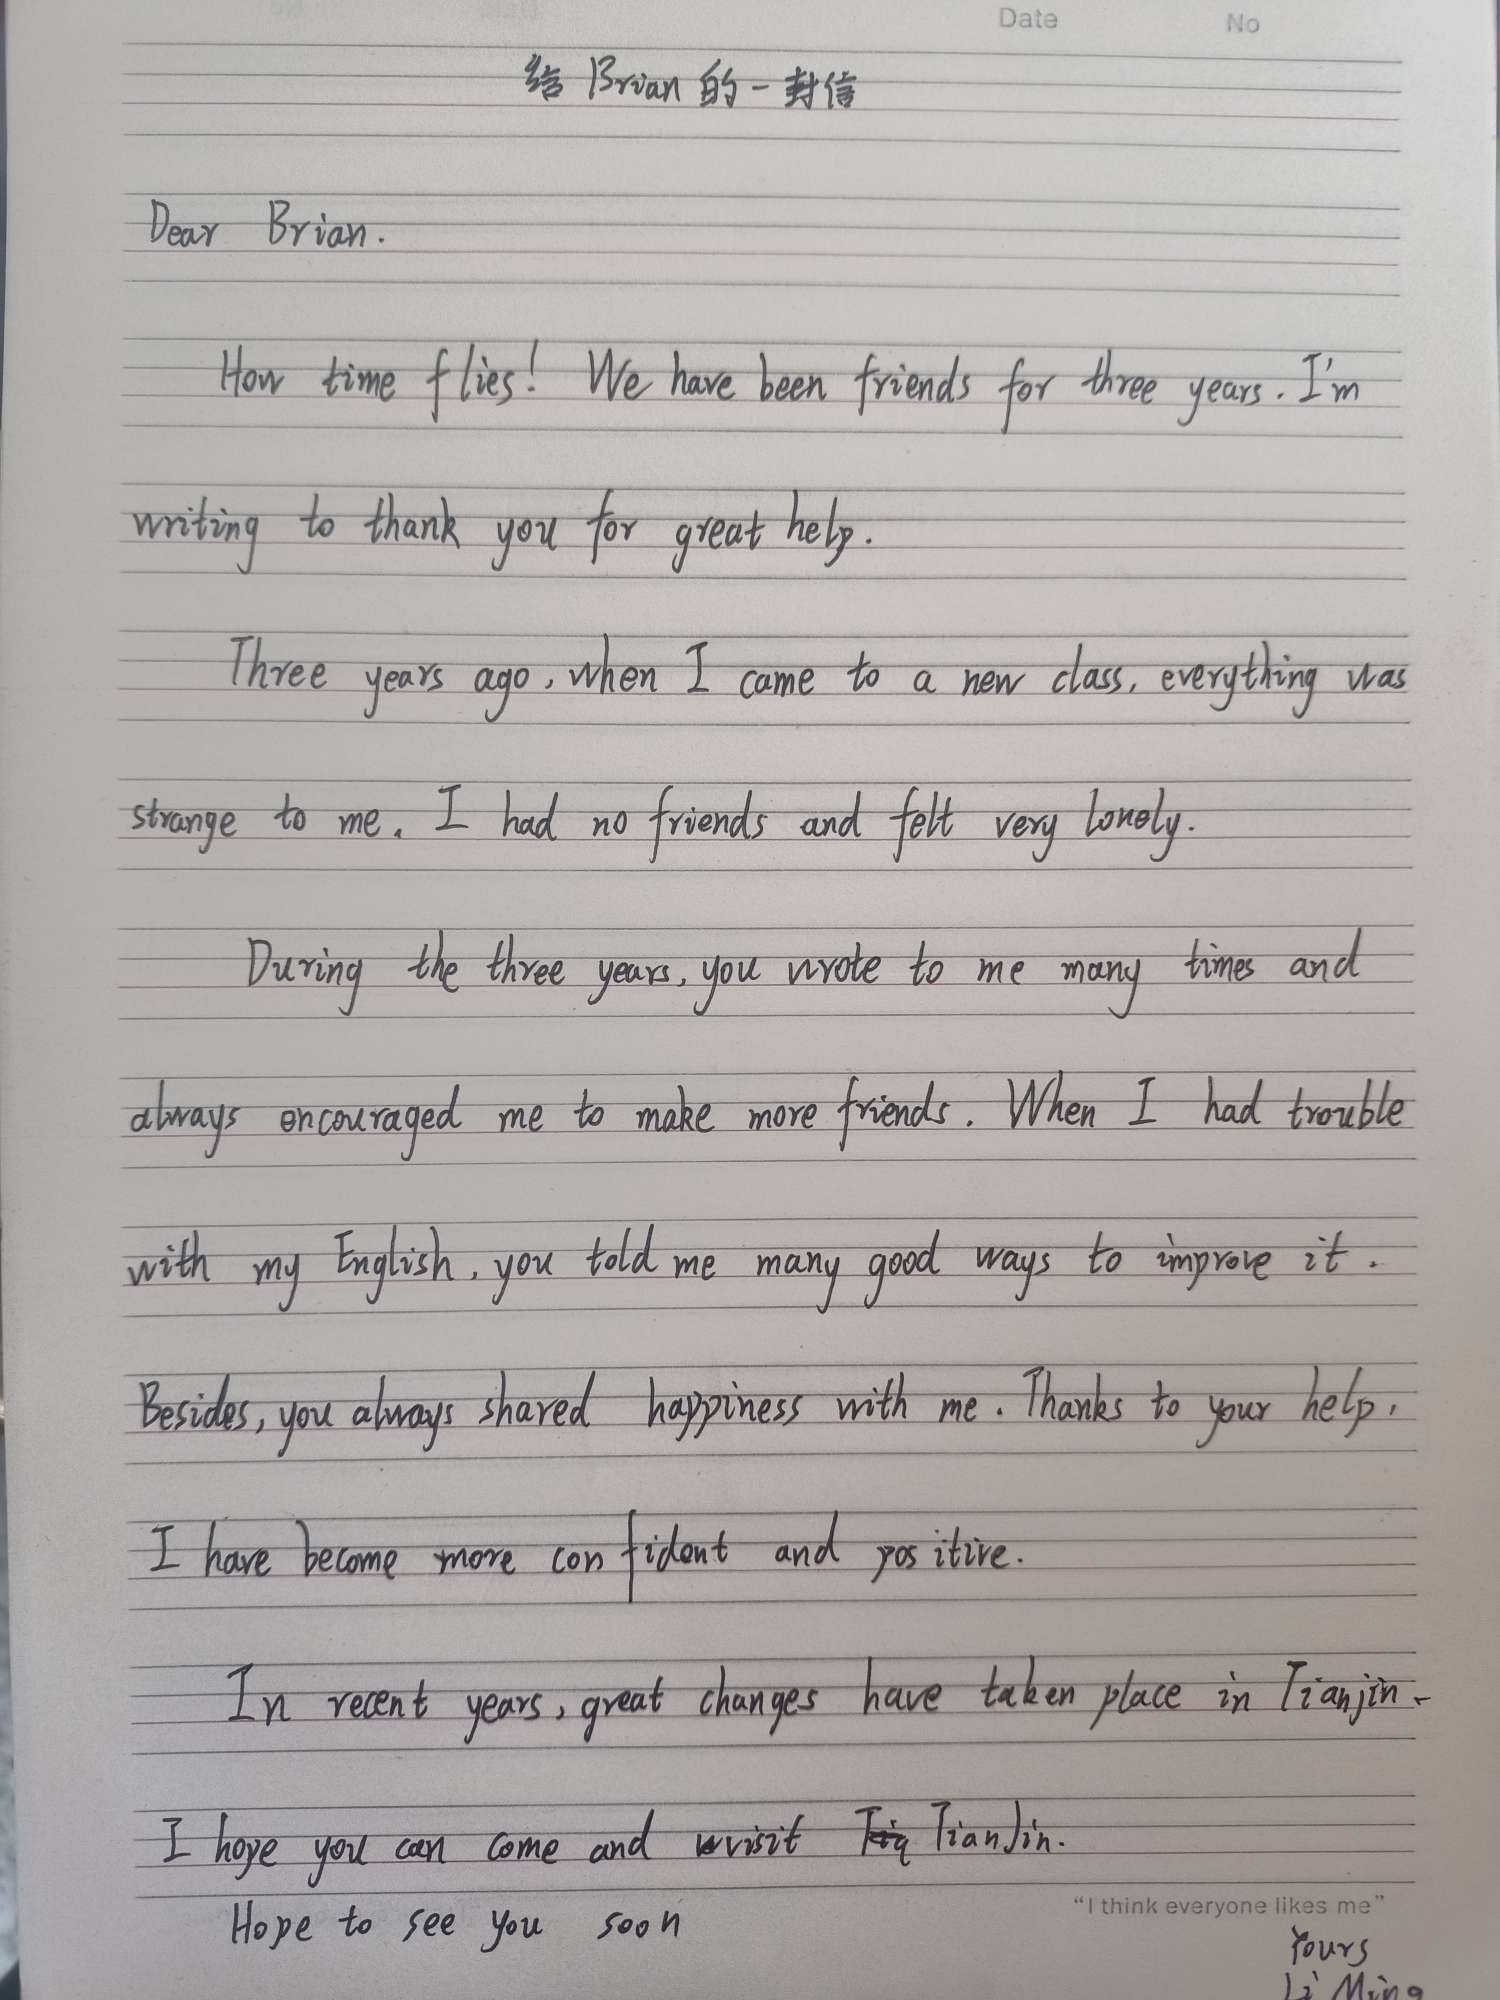 Date No
给Brian的一封信
Dear Brian.
How time flies! We have been friends for three years. I'm
writing to thank you for great help.
Three years ago, when I came to a new class, everything was
strange to me. I had no friends and felt very lonely.
During the three years, you wrote to me many times and
always encouraged me to make more friends. When I had trouble
with my English, you told me many good ways to improve it.
Besides, you always shared happiness with me. Thanks to your help,
I have become more confident and positive.
In recent years, great changes have taken place in Tianjin.
I hope you can come and visit TianJin.
"I think everyone likes me"
Hope to see you soon
Yours
Li Ming